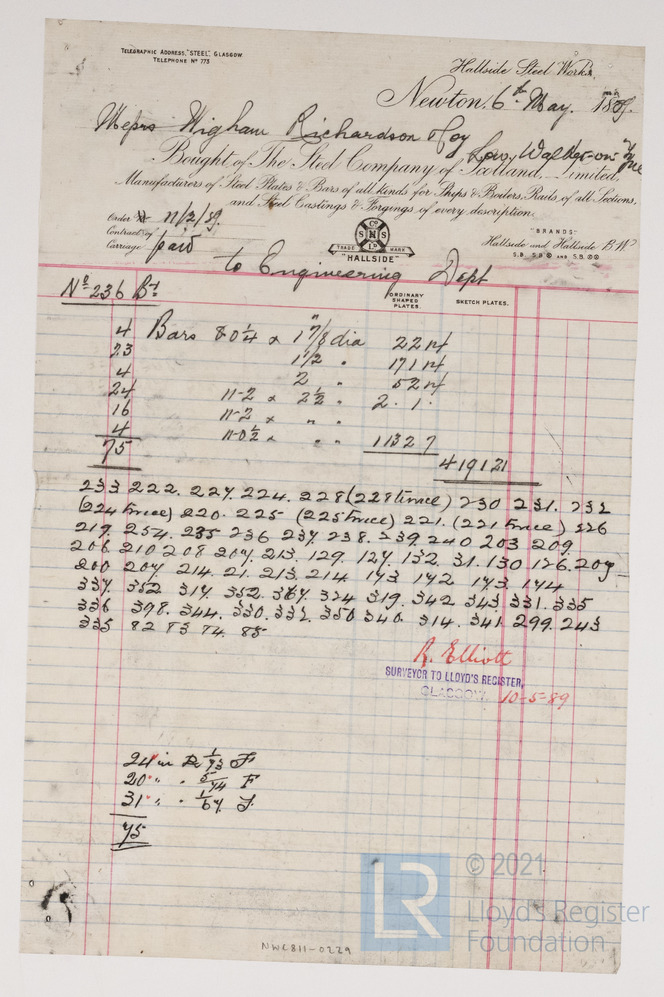 TELEGRAPHIC ADDRESS, "STEEL", GLASGOW
TELEPHONE Nº 773
Hallside Steel Works,
Newton, 6th May. 1889.
Messrs Wigham Richardson & Coy
Low Walker-on-Tyne
Bought of The Steel Company of Scotland, Limited,
Manufacturers of Steel Plates & Bars of all kinds for Ships & Boilers, Rails of all Sections,
and Steel Castings & Forgings of every description.
Order 11/2/89.
Contract of
Carriage paid
Cº S H S Lᴰ
TRADE MARK
"HALLSIDE"
"BRANDS"
Hallside and Hallside B.W
to Engineering Dept
Nº 236
ORDINARY SHAPED PLATES.
SKETCH PLATES.
4 Bars 8 0¼ x 1 7/8 dia
23 1 1/2 "
4 2 "
24 11-2 x 2½ " 2 . 1 .
16 11-2 x " "
4 11-0½ x " " 11 3 2 7
75
4 19 1 21
233 222. 227. 224. 228 (228 twice) 230 231. 232
(224 twice) 220. 225 (225 twice) 221. (221 twice) 226
219. 254. 235 236 237 238. 239 240 203 209.
206 210 208 207. 213. 129. 127. 132. 31. 130 126. 209
200 207. 214. 21. 213. 214 173 172 173 174
337. 352 317. 352. 367. 324 319. 342 343. 331. 335
336 398. 344. 330. 332. 350 340. 314. 341. 299. 243
335 82 73 74. 85
R. Elliott
SURVEYOR TO LLOYD'S REGISTER,
GLASGOW. 10-5-89
24 in 1/73 F
20 " " 5/74 F
31 " " 1/67 F
75
LR
© 2021
Lloyd's Register
Foundation
NWC811-0229